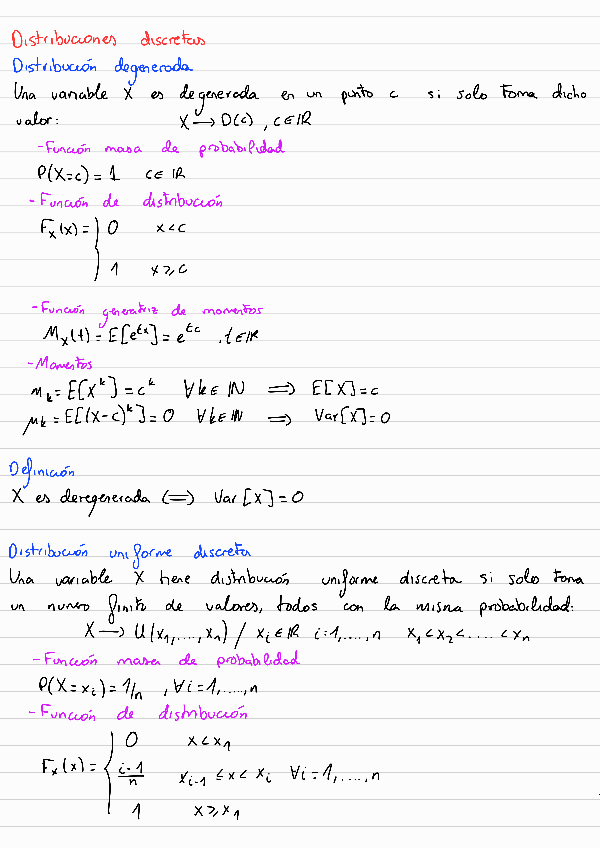 Distribuciones discretas
Distribución degenerada
Una variable X es degenerada en un punto c si solo toma dicho
valor: X → D(c) , c ∈ IR
- Función masa de probabilidad
P(X=c) = 1 c ∈ IR
- Función de distribución
F_X(x) = { 0 x < c
1 x ≥ c
- Función generatriz de momentos
M_X(t) = E[e^{tx}] = e^{tc} , t ∈ IR
- Momentos
m_k = E[X^k] = c^k ∀k ∈ IN ⟹ E[X] = c
μ_k = E[(X-c)^k] = 0 ∀k ∈ IN ⟹ Var[X] = 0
Definición
X es deregenerada ⟺ Var[X] = 0
Distribución uniforme discreta
Una variable X tiene distribución uniforme discreta si solo toma
un numero finito de valores, todos con la misma probabilidad:
X → U(x_1,...,x_n) / x_i ∈ IR i=1,....,n x_1 < x_2 < .... < x_n
- Función masa de probabalidad
P(X=x_i) = 1/n , ∀i=1,....,n
- Función de distribución
F_X(x) = { 0 x < x_1
(i-1)/n x_{i-1} ≤ x < x_i ∀i=1,....,n
1 x ≥ x_1